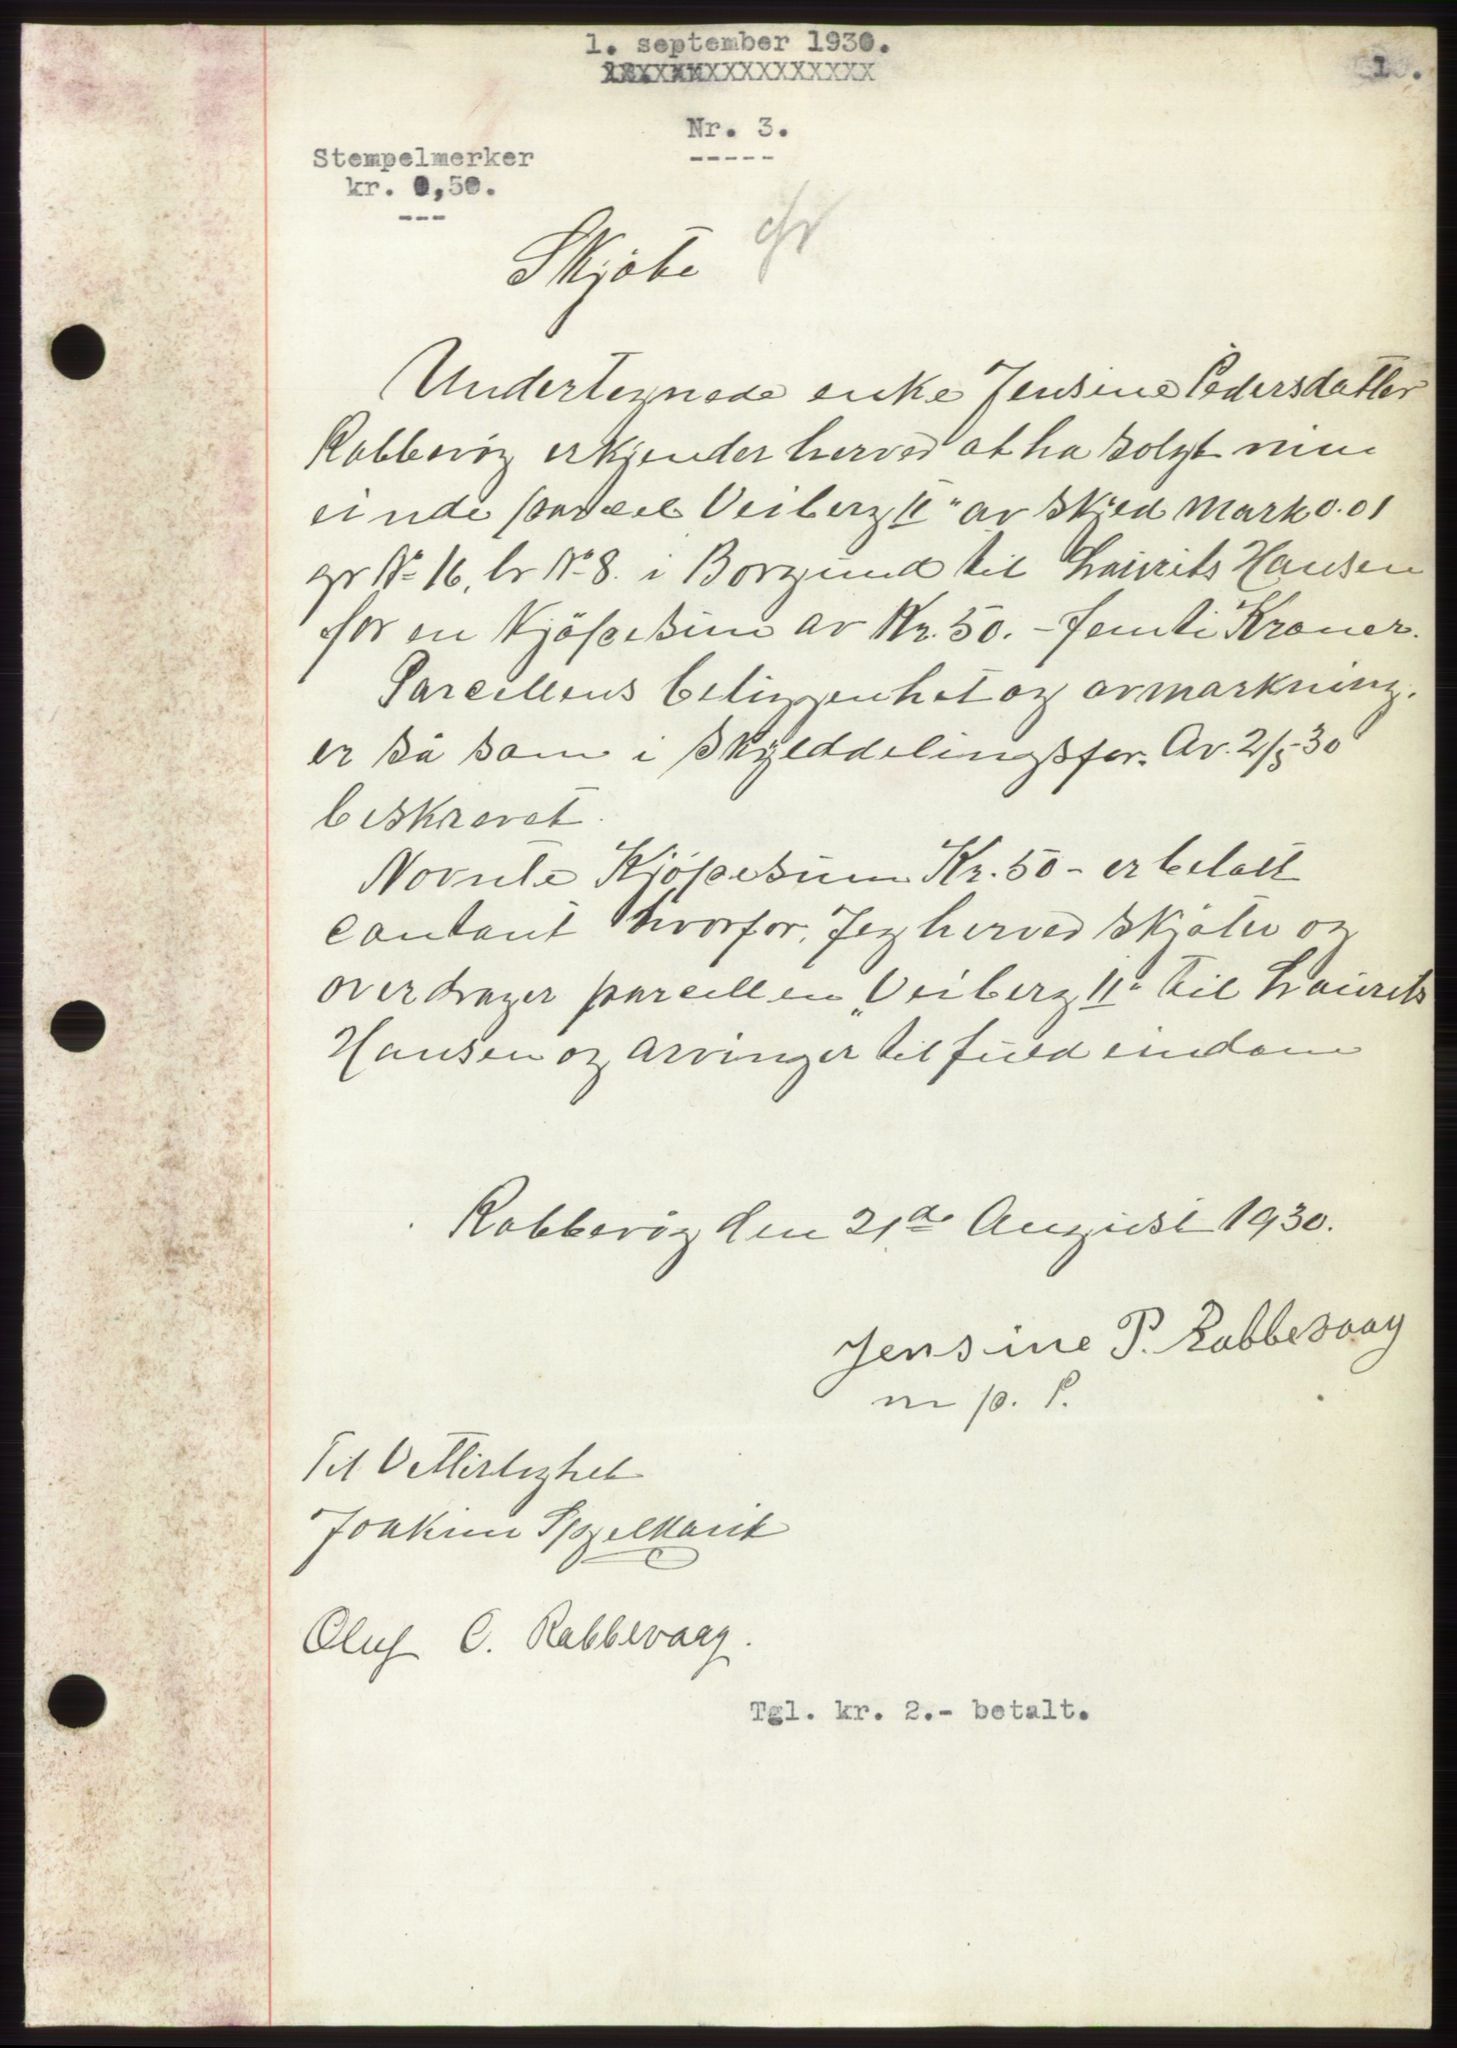 1. september 1930.
1.
Nr. 3.
-----
Stempelmerker
kr. 0,50.
---
Skjøte
Undertegnede enke Jensine Pedersdatter
Rabbevåg erkjender herved at ha solgt min
eiende parcel Veiberg II" av skyld mark 0.01
gr No 16, br No 8. i Borgund til Laurits Hansen
for en Kjöpesum av Kr. 50. - femti Kroner.
Parcellens beliggenhet og avmarkning.
er så som i skylddelingsfor. Av. 2/5-30
beskrevet.
Nevnte Kjöpesum Kr. 50 - er betalt
contant hvorfor, Jeg herved skjøter og
overdrager parcellen „Veiberg II" til Laurits
Hansen og arvinger til fuld eindom
Rabbevåg den 21de August 1930.
Jensine P. Rabbevaag
m p. P.
Til Vitterlighet
Joakim Spjelkavik
Oluf C. Rabbevaag.
Tgl. kr. 2.- betalt.